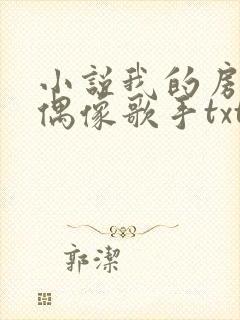 小説我的房
偶像歌手txt
郭潔